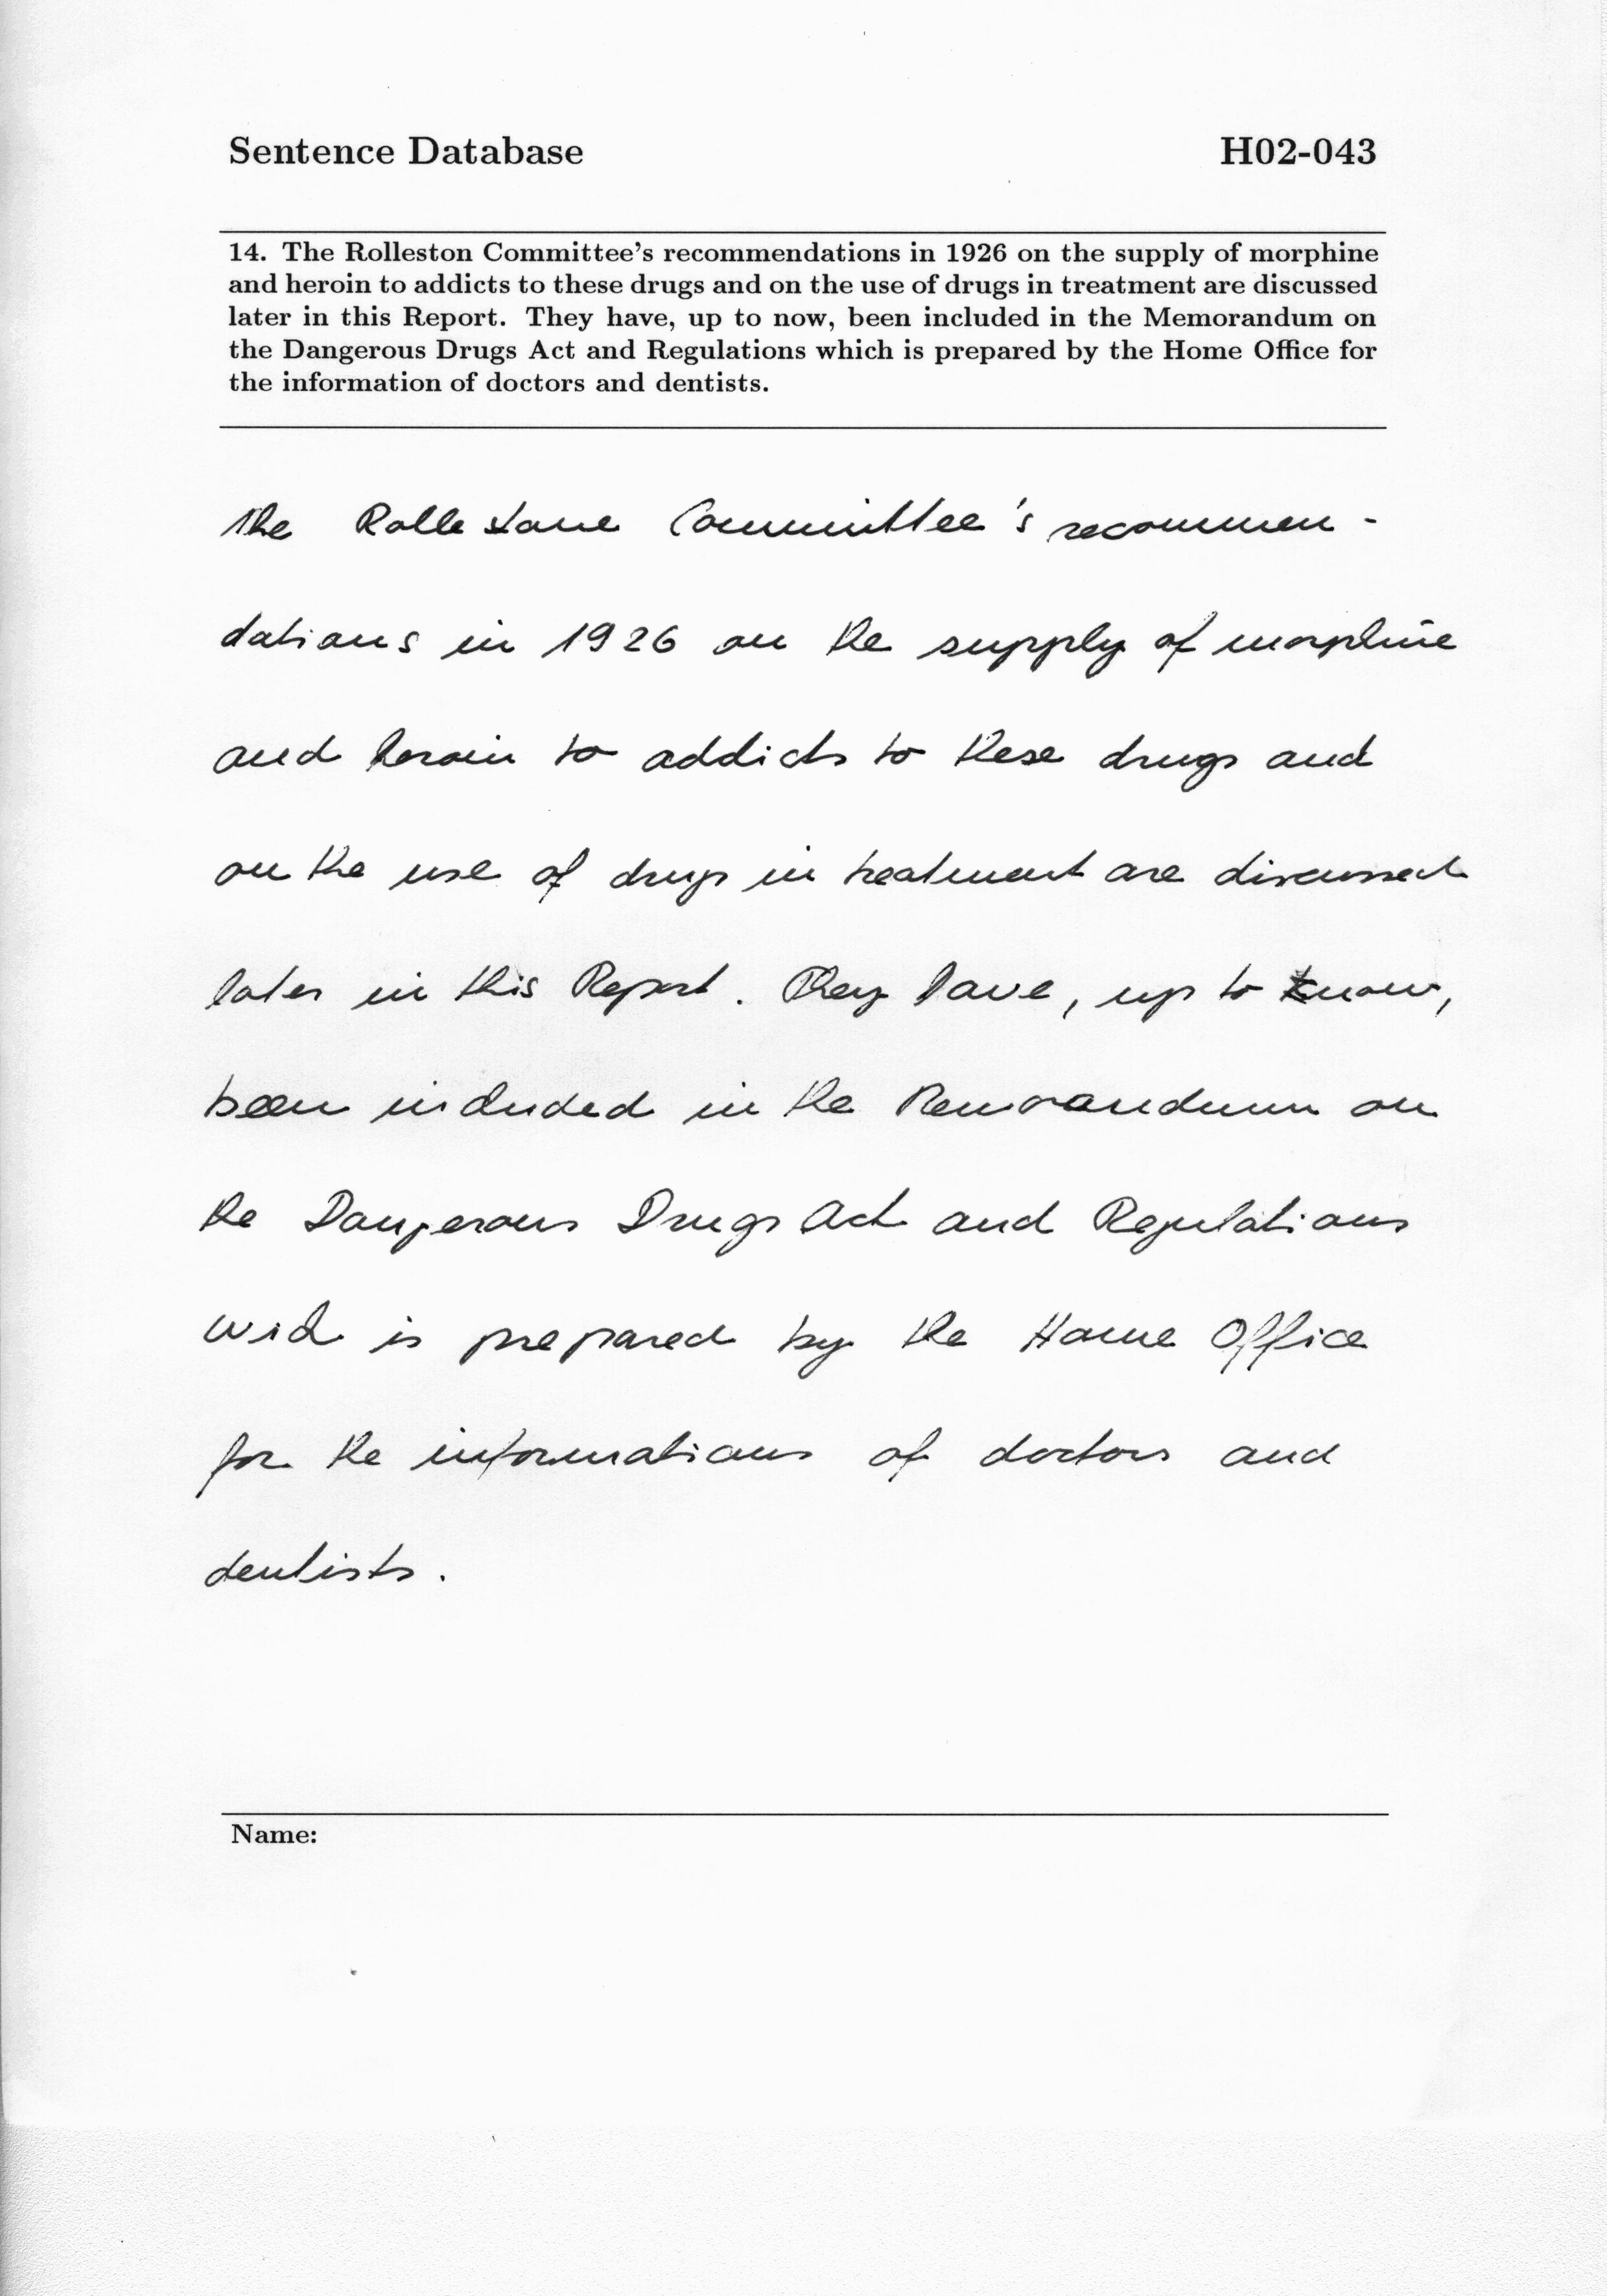 Sentence Database H02-043
14. The Rolleston Committee's recommendations in 1926 on the supply of morphine
and heroin to addicts to these drugs and on the use of drugs in treatment are discussed
later in this Report. They have, up to now, been included in the Memorandum on
the Dangerous Drugs Act and Regulations which is prepared by the Home Office for
the information of doctors and dentists.
The Rollestone Committee's recommen-
dations in 1926 on the supply of morphine
and heroin to addicts to these drugs and
on the use of drugs in treatment are discussed
later in this Report. They have, up to know,
been included in the Memorandum on
the Dangerous Drugs Act and Regulations
wich is prepared by the Home Office
for the informations of doctors and
dentists.
Name: